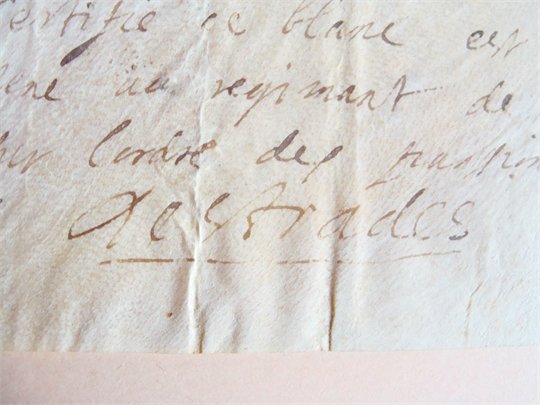 ertifie ce blanc est
regimant de
lordre des
destrades